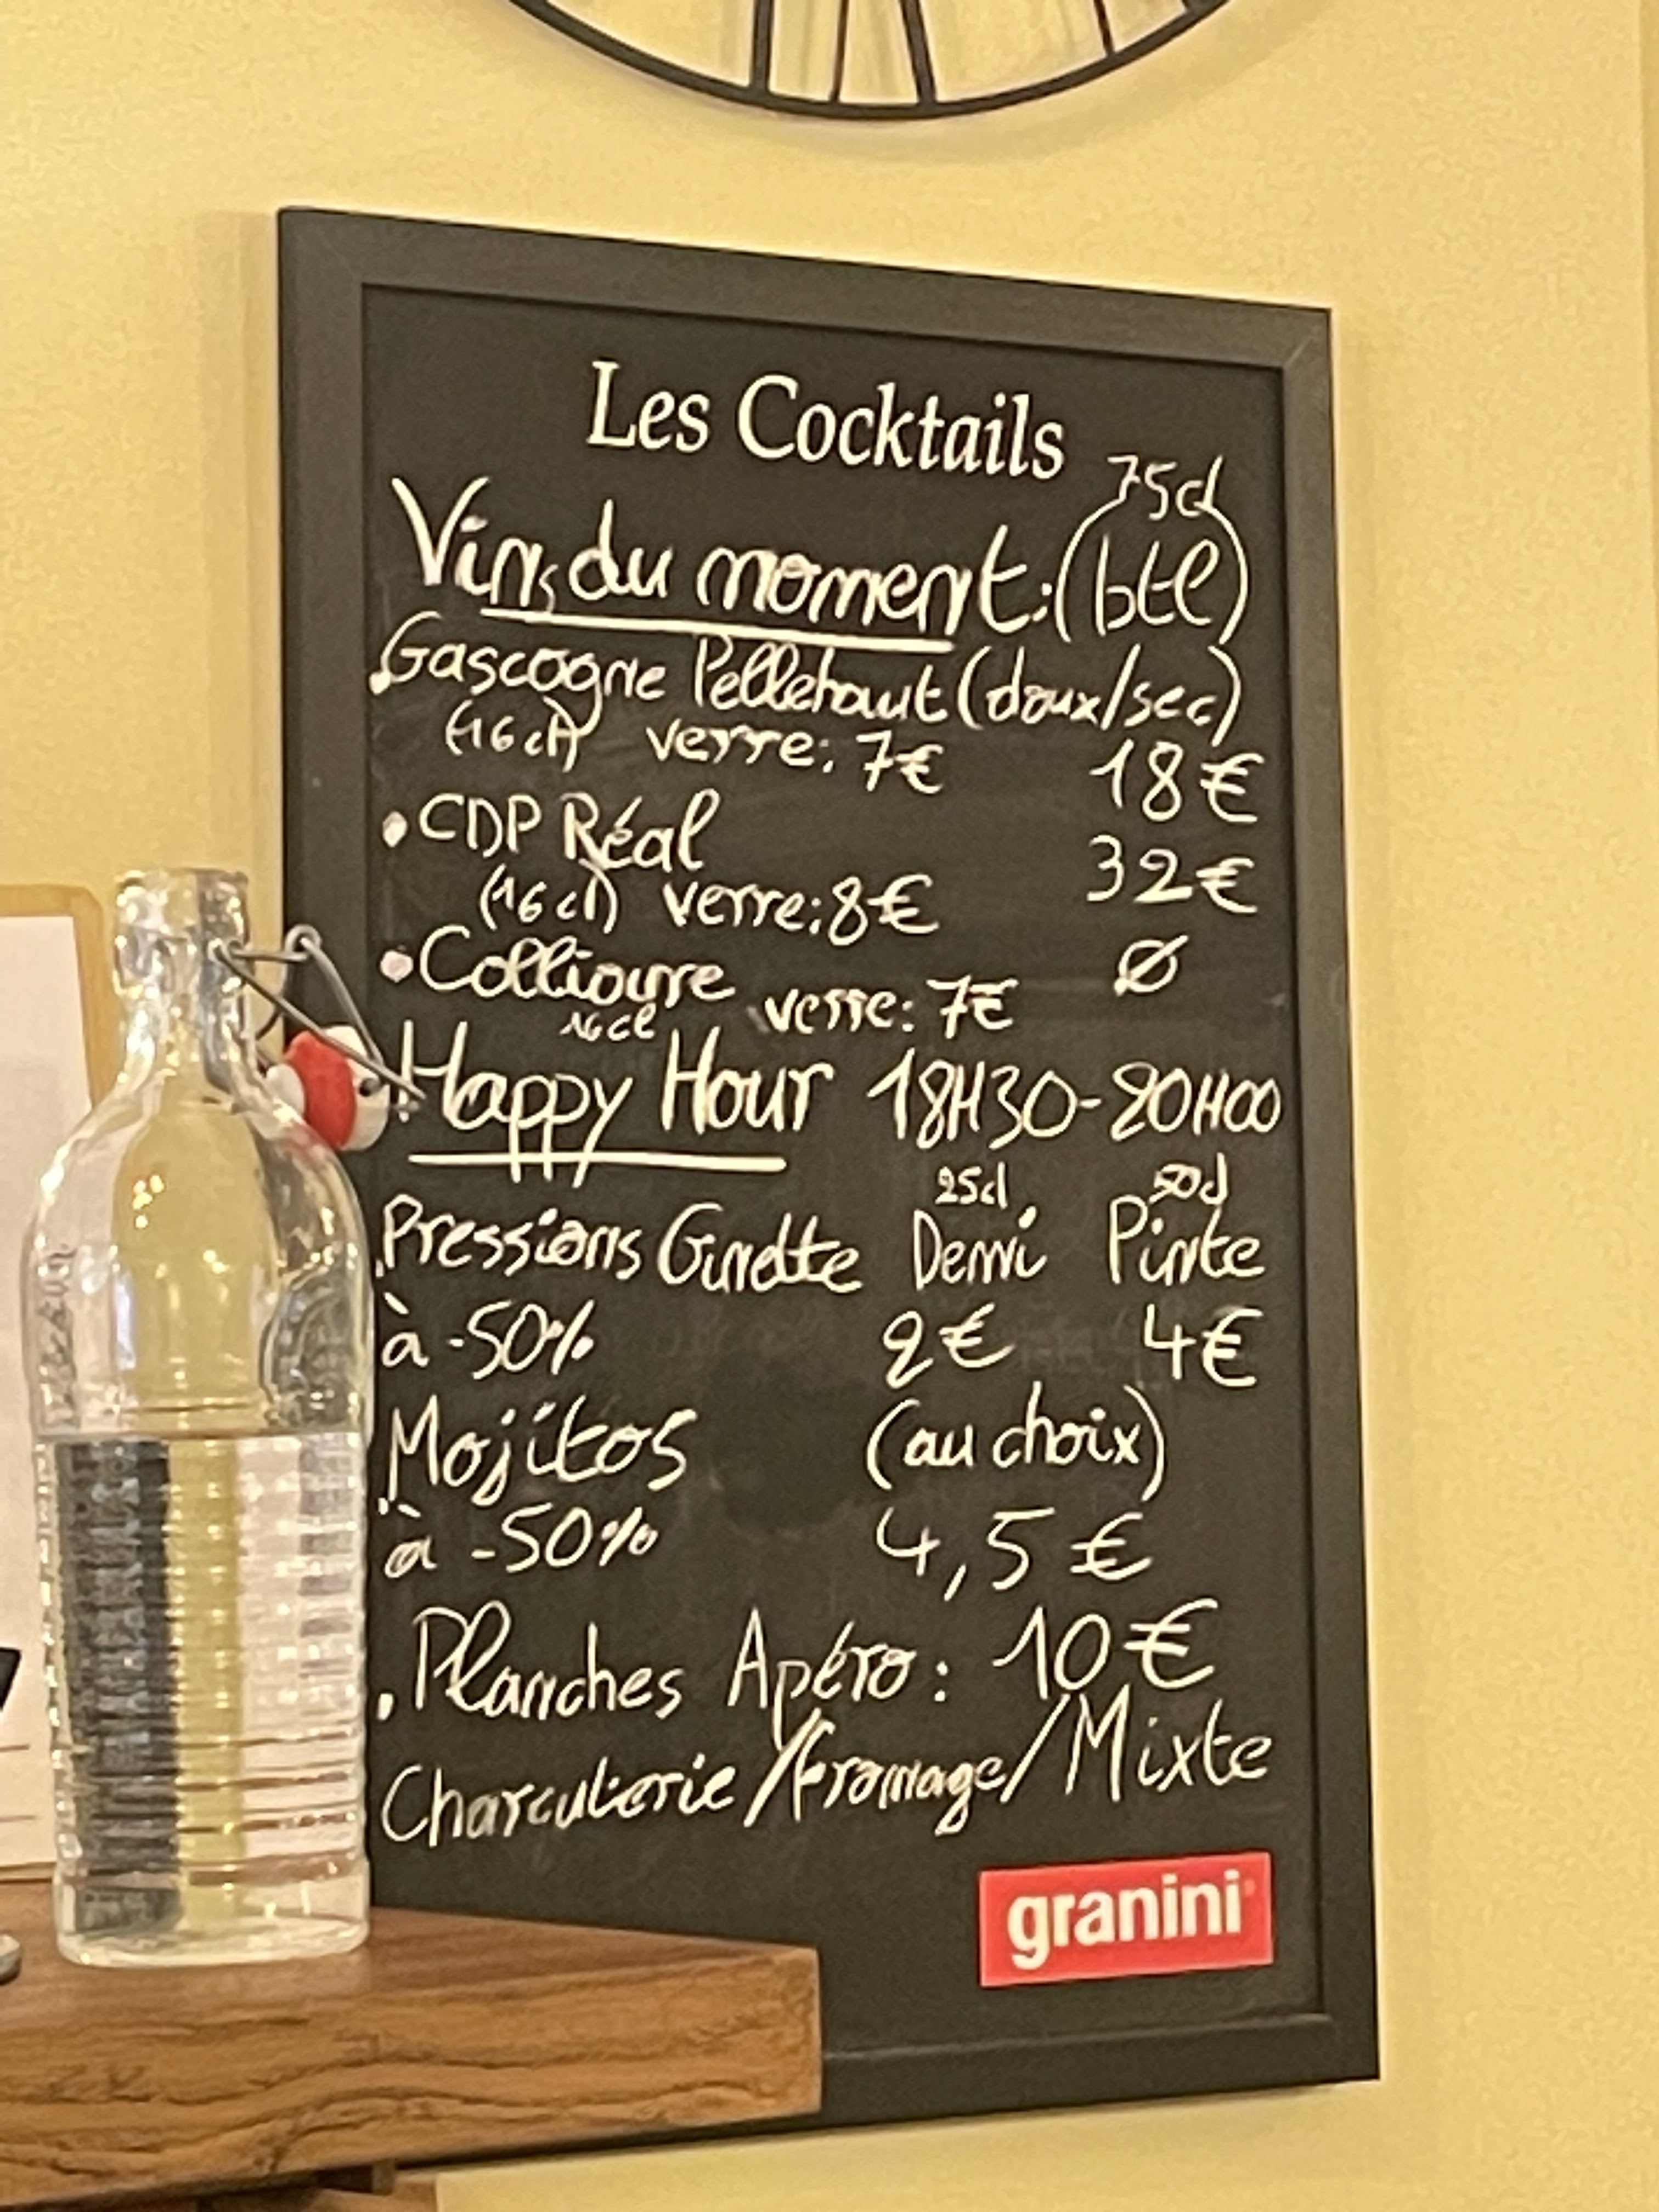 Les Cocktails
75cl
Vins du moment : (btl)
.Gascogne Pellehaut (doux/sec)
(16cl) verre: 7€ 18€
• CDP Réal 32€
(16cl) verre: 8€
• Collioure Ø
16cl verre: 7€
Happy Hour 18H30-20H00
25cl 50cl
.Pressions Guinette Demi Pinte
à -50% 2€ 4€
Mojitos (au choix)
à -50% 4,5€
. Planches Apéro : 10€
Charcuterie/fromage/Mixte
granini